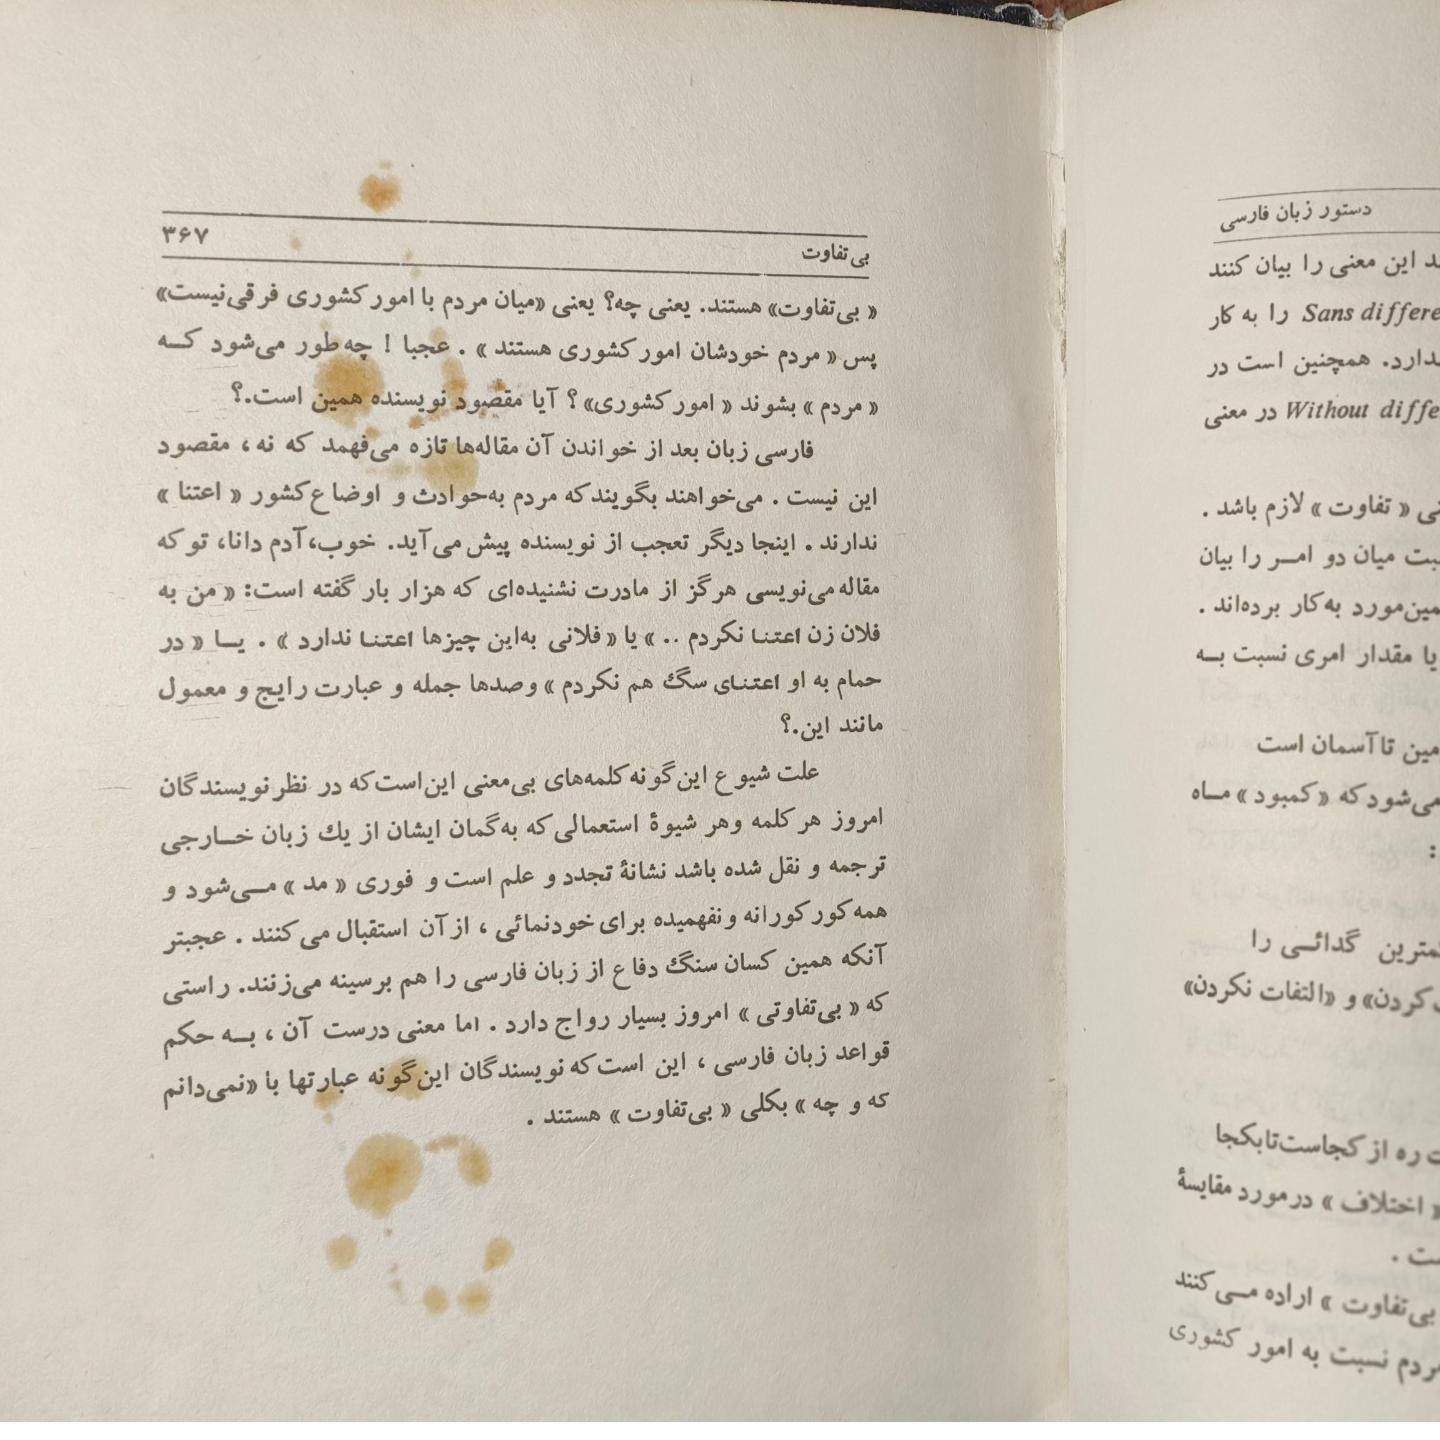 دستور زبان فارسی
این معنی را بیان کنند
Sans را به کار
همچنین است در
Without در معنی
« تفاوت » لازم باشد .
میان دو امــر را بیان
به‌کار برده‌اند .
یا مقدار امری نسبت بــه
تا آسمان است
می‌شود که « کمبود » مــاه
:
گدائــی را
و «التفات نکردن»
ره از کجاست‌تابکجا
« اختلاف » درمورد مقایسهٔ
.
بی‌تفاوت » اراده مــی‌کنند
نسبت به امور کشوری
بی‌تفاوت
۳۶۷
« بی‌تفاوت» هستند. یعنی چه؟ یعنی «میان مردم با امور کشوری فرقی‌نیست»
پس « مردم خودشان امور کشوری هستند » . عجبا ! چه‌طور می‌شود کــه
« مردم » بشوند « امور کشوری» ؟ آیا مقصود نویسنده همین است.؟
فارسی زبان بعد از خواندن آن مقاله‌ها تازه می‌فهمد که نه، مقصود
این نیست . می‌خواهند بگویند که مردم به‌حوادث و اوضاع کشور « اعتنا »
ندارند . اینجا دیگر تعجب از نویسنده پیش می‌آید. خوب،آدم دانا، تو که
مقاله می‌نویسی هرگز از مادرت نشنیده‌ای که هزار بار گفته است: « من به
فلان زن اعتنـا نکردم .. » یا « فلانی به‌این چیزها اعتنـا ندارد » . یــا « در
حمام به او اعتنـای سگ هم نکردم » وصدها جمله و عبارت رایج و معمول
مانند این.؟
علت شیوع این‌گونه کلمه‌های بی‌معنی این‌است که در نظر نویسندگان
امروز هر کلمه وهر شیوهٔ استعمالی که به‌گمان ایشان از یك زبان خــارجی
ترجمه و نقل شده باشد نشانهٔ تجدد و علم است و فوری « مد » مــی‌شود و
همه کورکورانه ونفهمیده برای خودنمائی ، از آن استقبال می‌کنند . عجبتر
آنکه همین کسان سنگ دفاع از زبان فارسی را هم برسینه می‌زنند. راستی
که « بی‌تفاوتی » امروز بسیار رواج دارد . اما معنی درست آن ، بــه حکم
قواعد زبان فارسی ، این است که نویسندگان این‌گونه عبارتها با «نمی‌دانم
که و چه » بکلی « بی‌تفاوت » هستند .